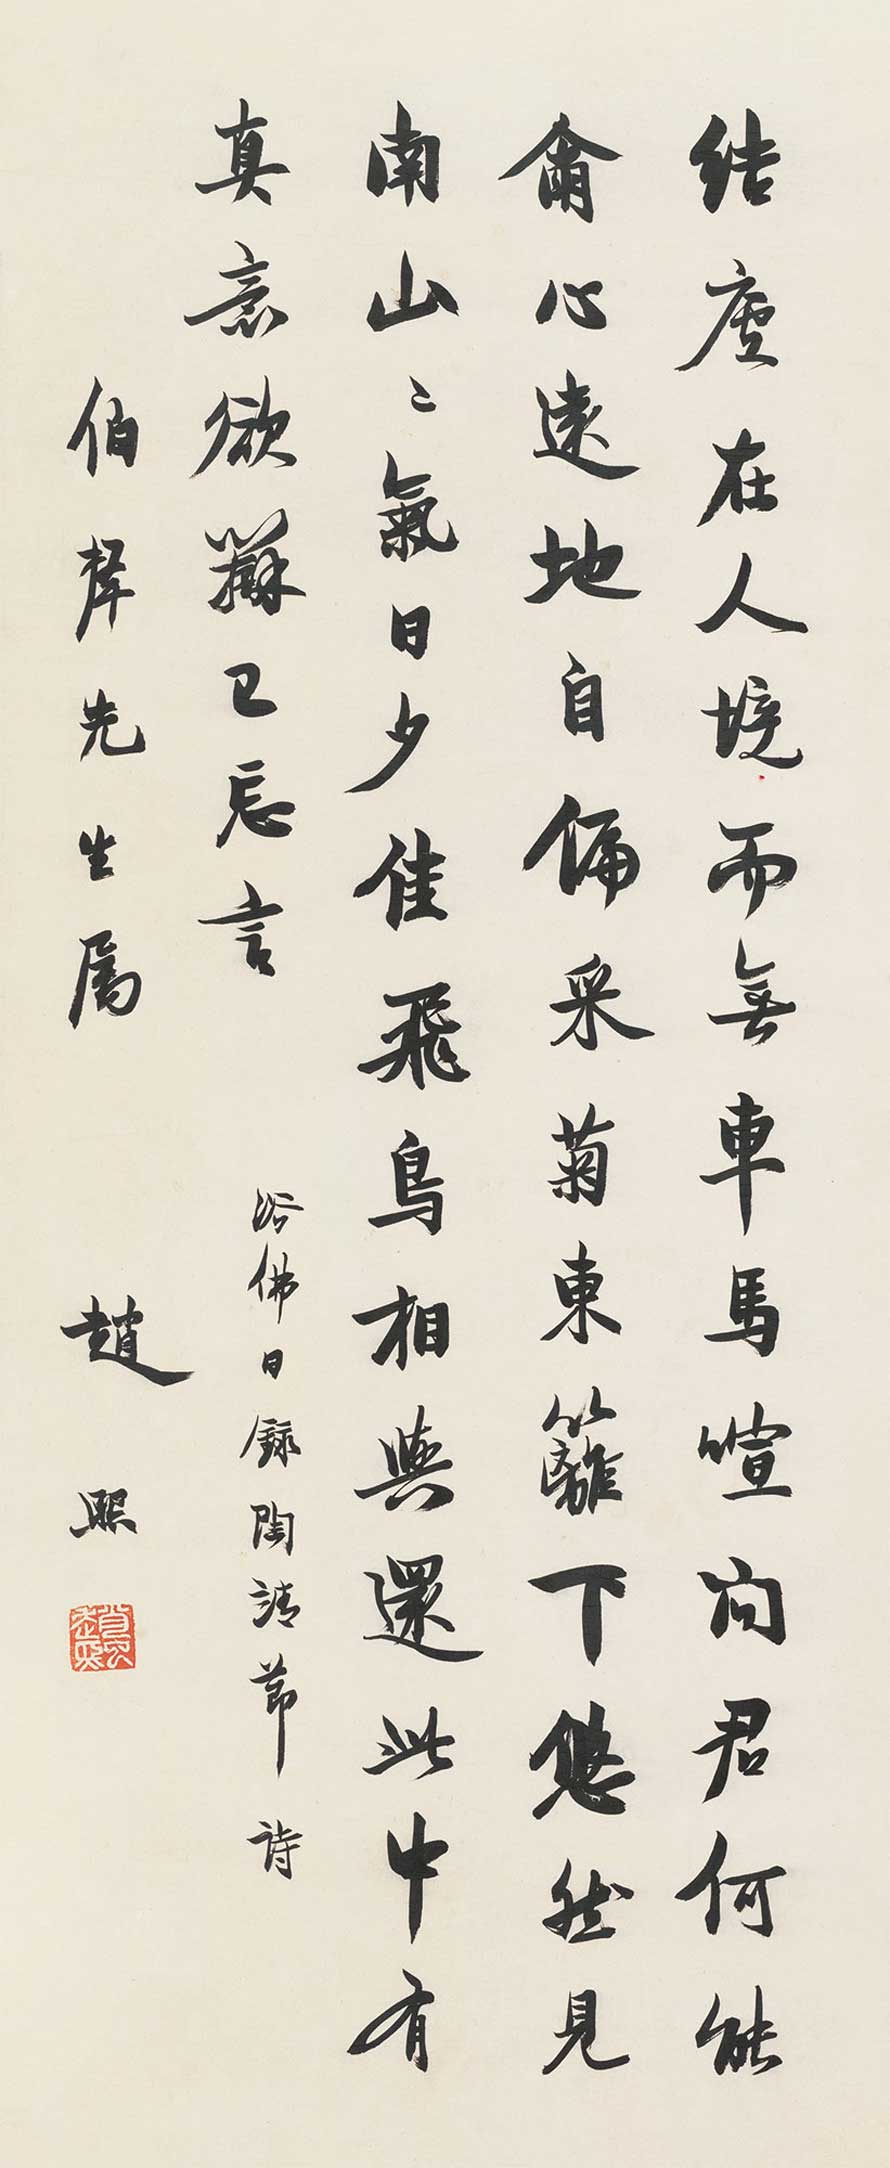 結廬在人境而無車馬喧問君何能
爾心遠地自偏采菊東籬下悠然見
南山〻氣日夕佳飛鳥相與還此中有
真意欲辯已忘言
浴佛日錄陶靖節詩
伯聲先生屬
趙熙